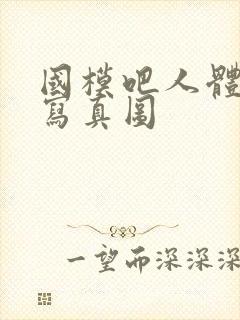 國模吧人體
寫真圖
一望而深深深